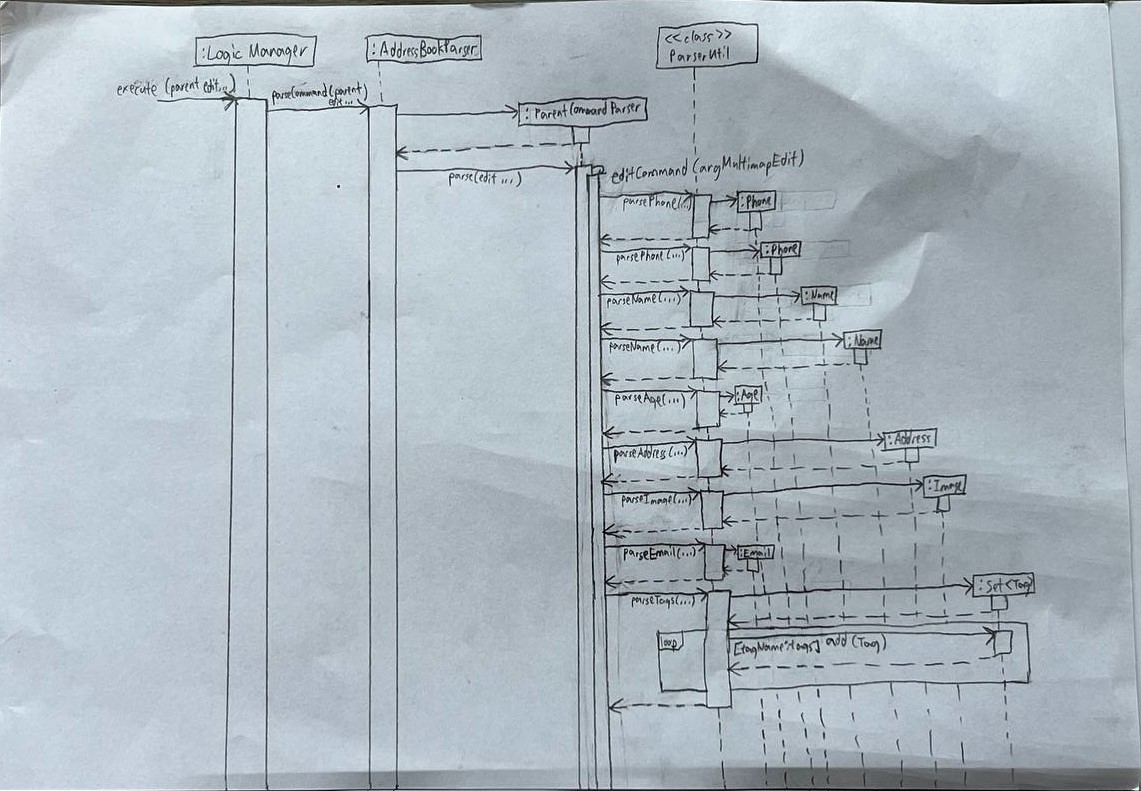 :Logic Manager
:AddressBookParser
<<class>>
ParserUtil
execute (parent edit...)
parseCommand(parent
edit...
:ParentCommandParser
parse(edit ...)
editCommand (argMultimapEdit)
parsePhone(...)
:Phone
parsePhone(...)
:Phone
parseName(...)
:Name
parseName(...)
:Name
parseAge(...)
:Age
parseAddress(...)
:Address
parseImage(...)
:Image
parseEmail(...)
:Email
parseTags(...)
:Set<Tag>
loop
[tagName:tags] add (Tag)